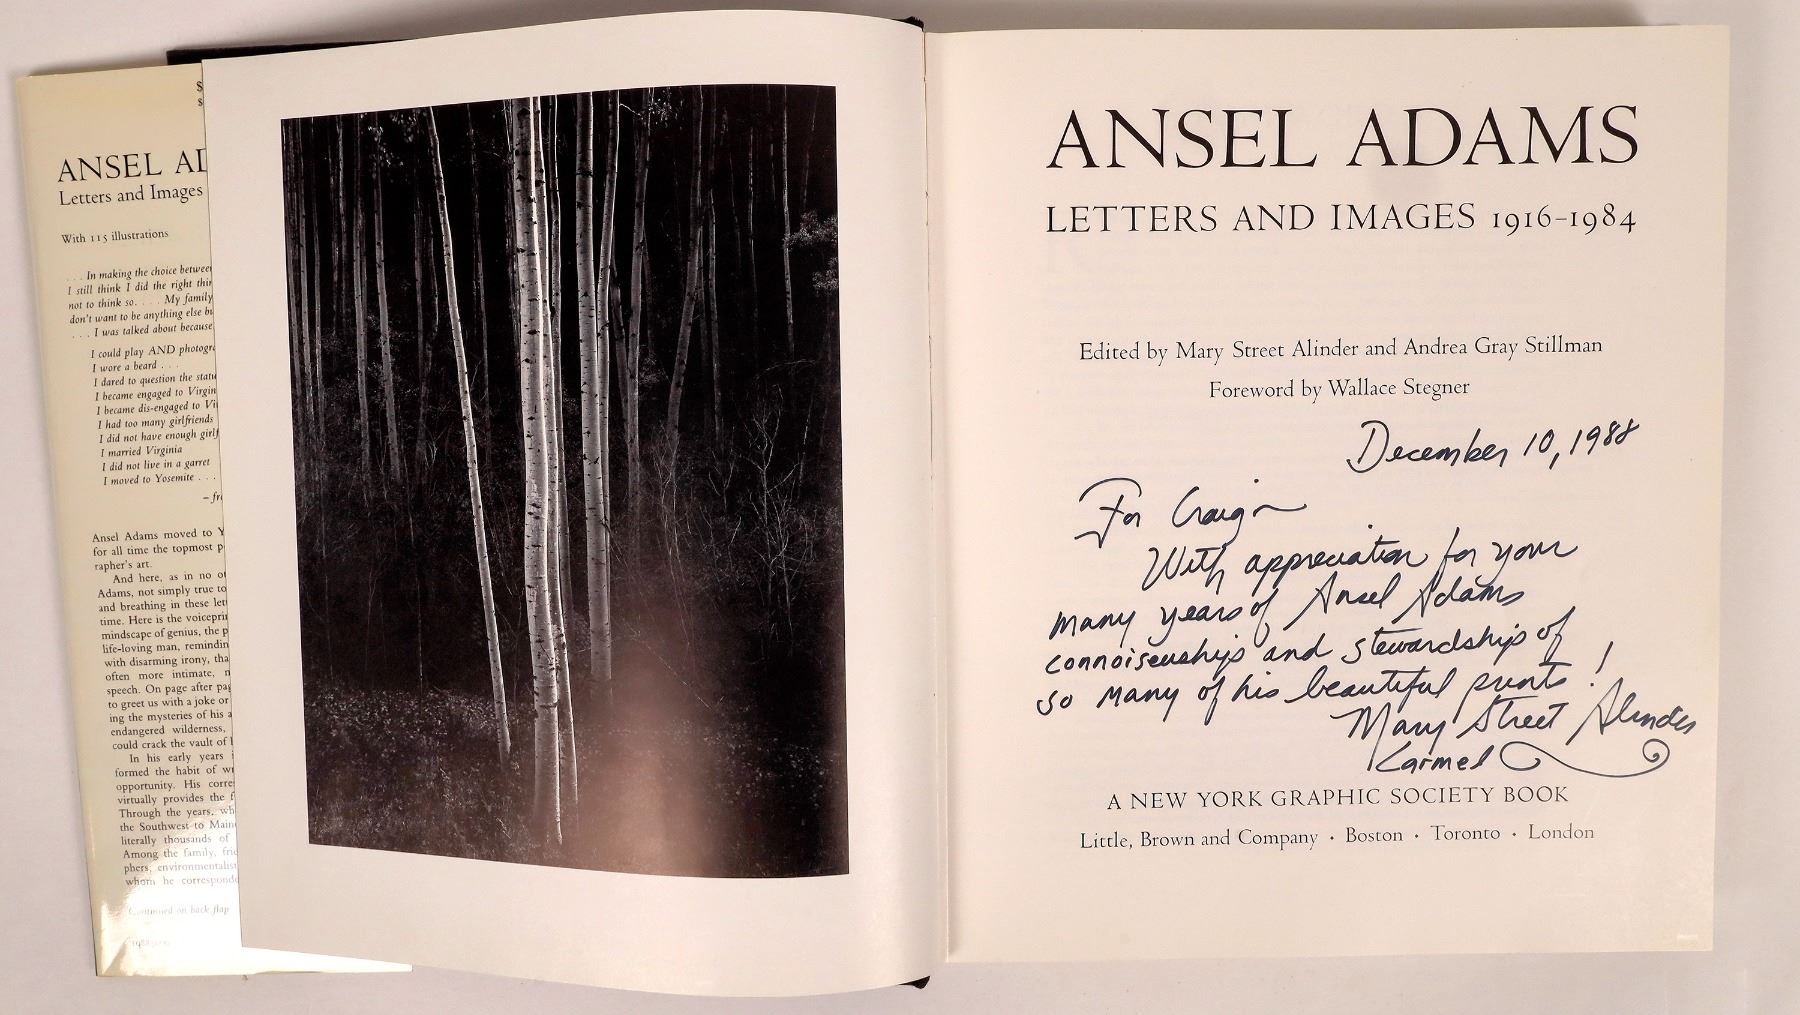 $
$
ANSEL AD
Letters and Images
With 115 illustrations
. . . In making the choice between
I still think I did the right thin
not to think so. . . . My family
don't want to be anything else bu
. . . I was talked about because
I could play AND photogra
I wore a beard . . .
I dared to question the statu
I became engaged to Virgin
I became dis-engaged to Vi
I had too many girlfriends
I did not have enough girlf
I married Virginia
I did not live in a garret
I moved to Yosemite . . .
– fr
Ansel Adams moved to Y
for all time the topmost p
rapher's art.
And here, as in no ot
Adams, not simply true to
and breathing in these let
time. Here is the voiceprin
mindscape of genius, the p
life-loving man, remindin
with disarming irony, tha
often more intimate, m
speech. On page after pag
to greet us with a joke or
ing the mysteries of his a
endangered wilderness,
could crack the vault of h
In his early years
formed the habit of wr
opportunity. His corre
virtually provides the f
Through the years, wh
the Southwest to Maine
literally thousands of
Among the family, frie
phers, environmentalist
whom he corresponde
Continued on back flap
ANSEL ADAMS
LETTERS AND IMAGES 1916–1984
Edited by Mary Street Alinder and Andrea Gray Stillman
Foreword by Wallace Stegner
December 10, 1988
For Craig –
With appreciation for your
many years of Ansel Adams
connoiseuship and stewardship of
so many of his beautiful prints!
Mary Street Alinder
Carmel
A NEW YORK GRAPHIC SOCIETY BOOK
Little, Brown and Company · Boston · Toronto · London